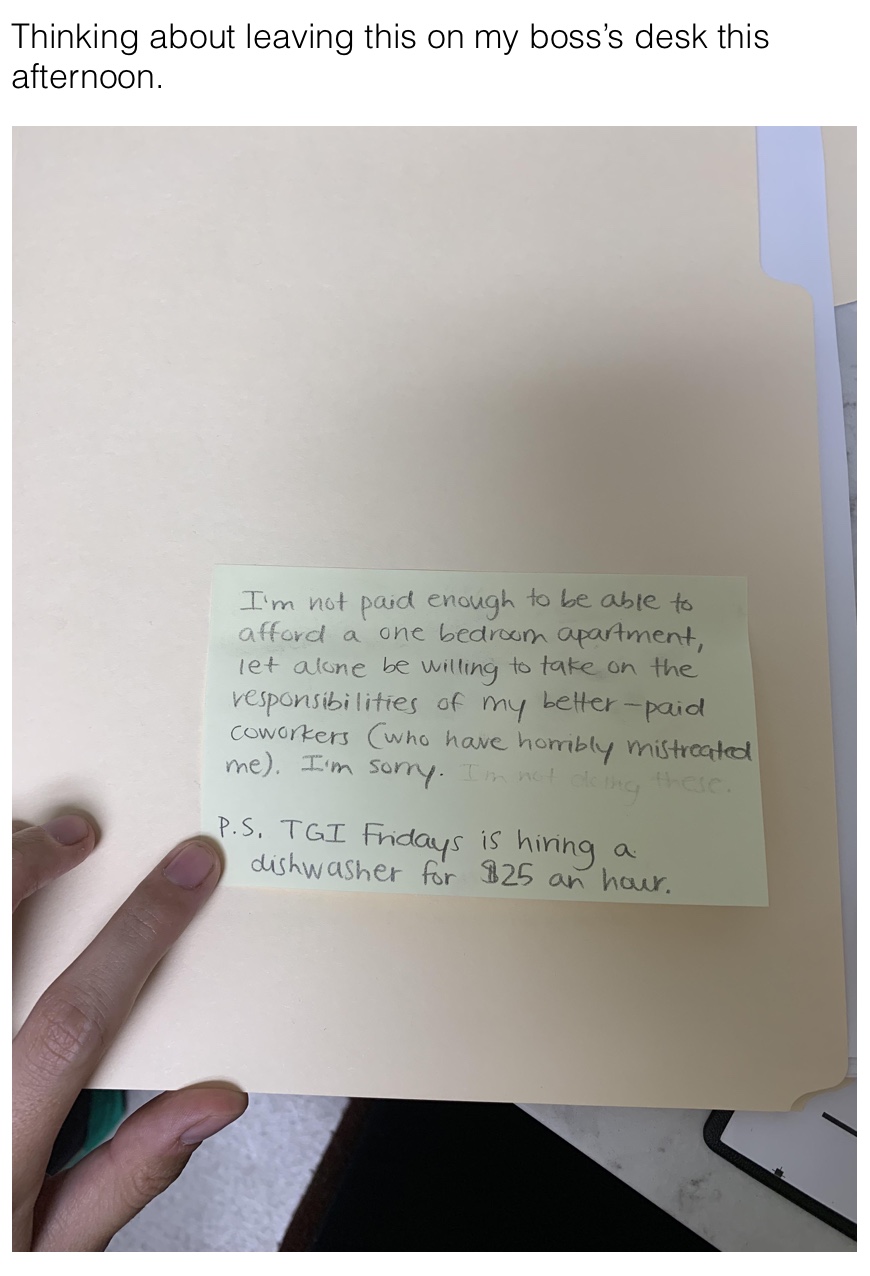 Thinking about leaving this on my boss's desk this
afternoon.
I'm not paid enough to be able to
afford a one bedroom apartment,
let alone be willing to take on the
responsibilities of my better-paid
coworkers (who have horribly mistreated
me). I'm sorry. I'm not doing these.
P.S. TGI Fridays is hiring a
dishwasher for $25 an hour.